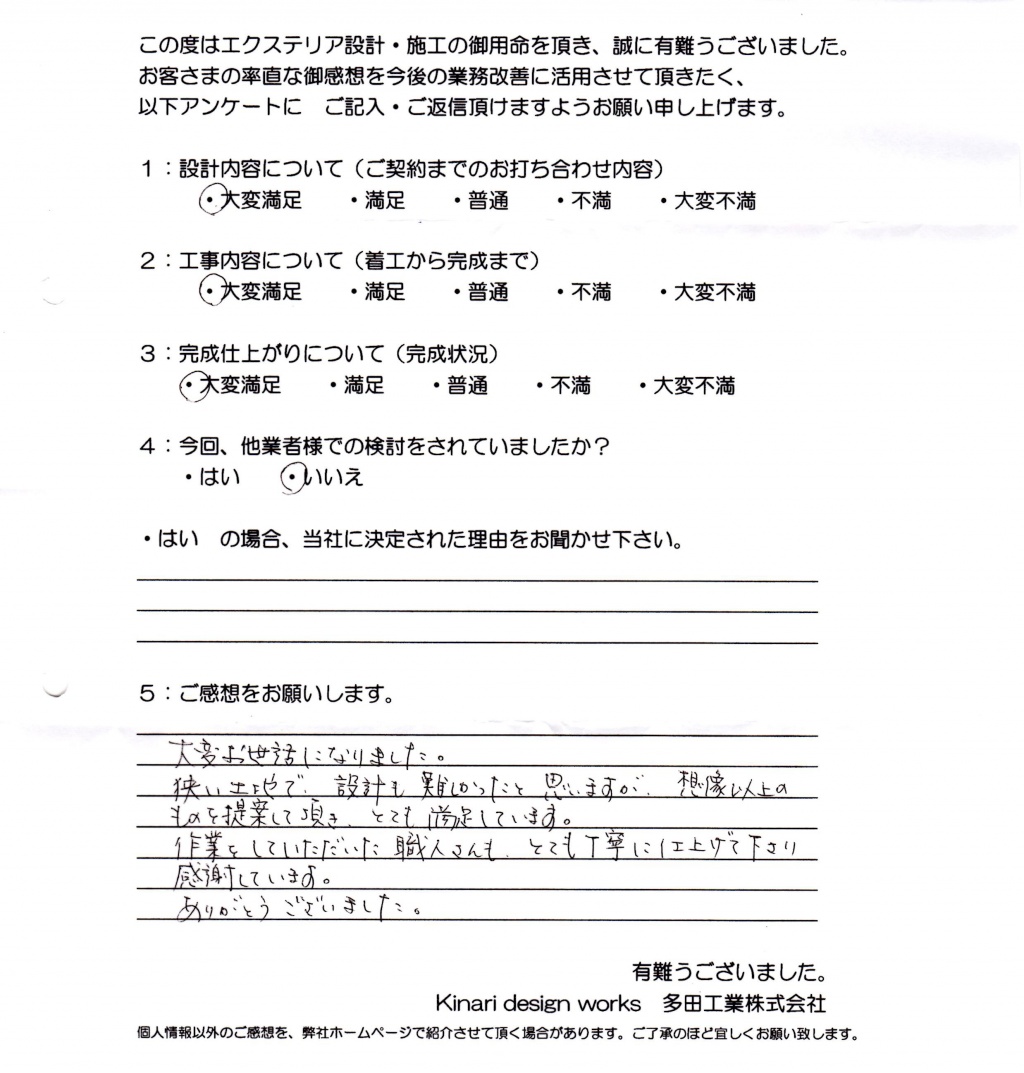 この度はエクステリア設計・施工の御用命を頂き、誠に有難うございました。
お客さまの率直な御感想を今後の業務改善に活用させて頂きたく、
以下アンケートに　ご記入・ご返信頂けますようお願い申し上げます。
1：設計内容について（ご契約までのお打ち合わせ内容）
・大変満足　・満足　・普通　・不満　・大変不満
2：工事内容について（着工から完成まで）
・大変満足　・満足　・普通　・不満　・大変不満
3：完成仕上がりについて（完成状況）
・大変満足　・満足　・普通　・不満　・大変不満
4：今回、他業者様での検討をされていましたか？
・はい　・いいえ
・はい　の場合、当社に決定された理由をお聞かせ下さい。
5：ご感想をお願いします。
大変お世話になりました。
狭い土地で、設計も難しかったと思いますが、想像以上の
ものを提案して頂き、とても満足しています。
作業をしていただいた職人さんも、とても丁寧に仕上げて下さり
感謝しています。
ありがとうございました。
有難うございました。
Kinari design works　多田工業株式会社
個人情報以外のご感想を、弊社ホームページで紹介させて頂く場合があります。ご了承のほど宜しくお願い致します。